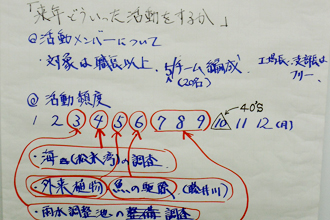 「来年どういった活動をするか」
◎活動メンバーについて
・対象は職長以上.
5チーム編成
(20名)
工場長、支部長は
フリー.
◎活動頻度
40'S
1 2 3 4 5 6 7 8 9 10 11 12 (月)
の調査
・外来植物 魚の駆除 (藤井川)
・雨水調整池の整備調査